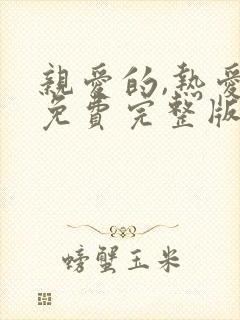 親愛的,熱愛
免費完整版
螃蟹玉米